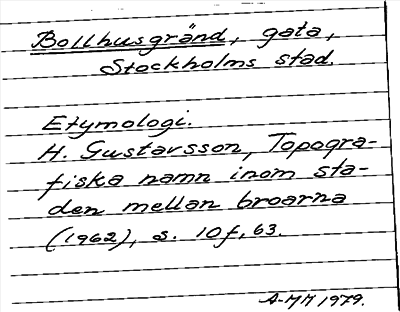 Bollhusgränd, gata,
Stockholms stad.
Etymologi.
H. Gustavsson, Topogra-
fiska namn inom sta-
den mellan broarna
(1962), s. 10f, 63.
A-MM 1979.